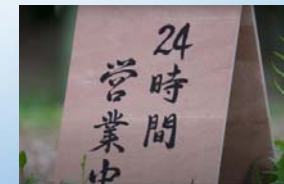 24時間
営業中